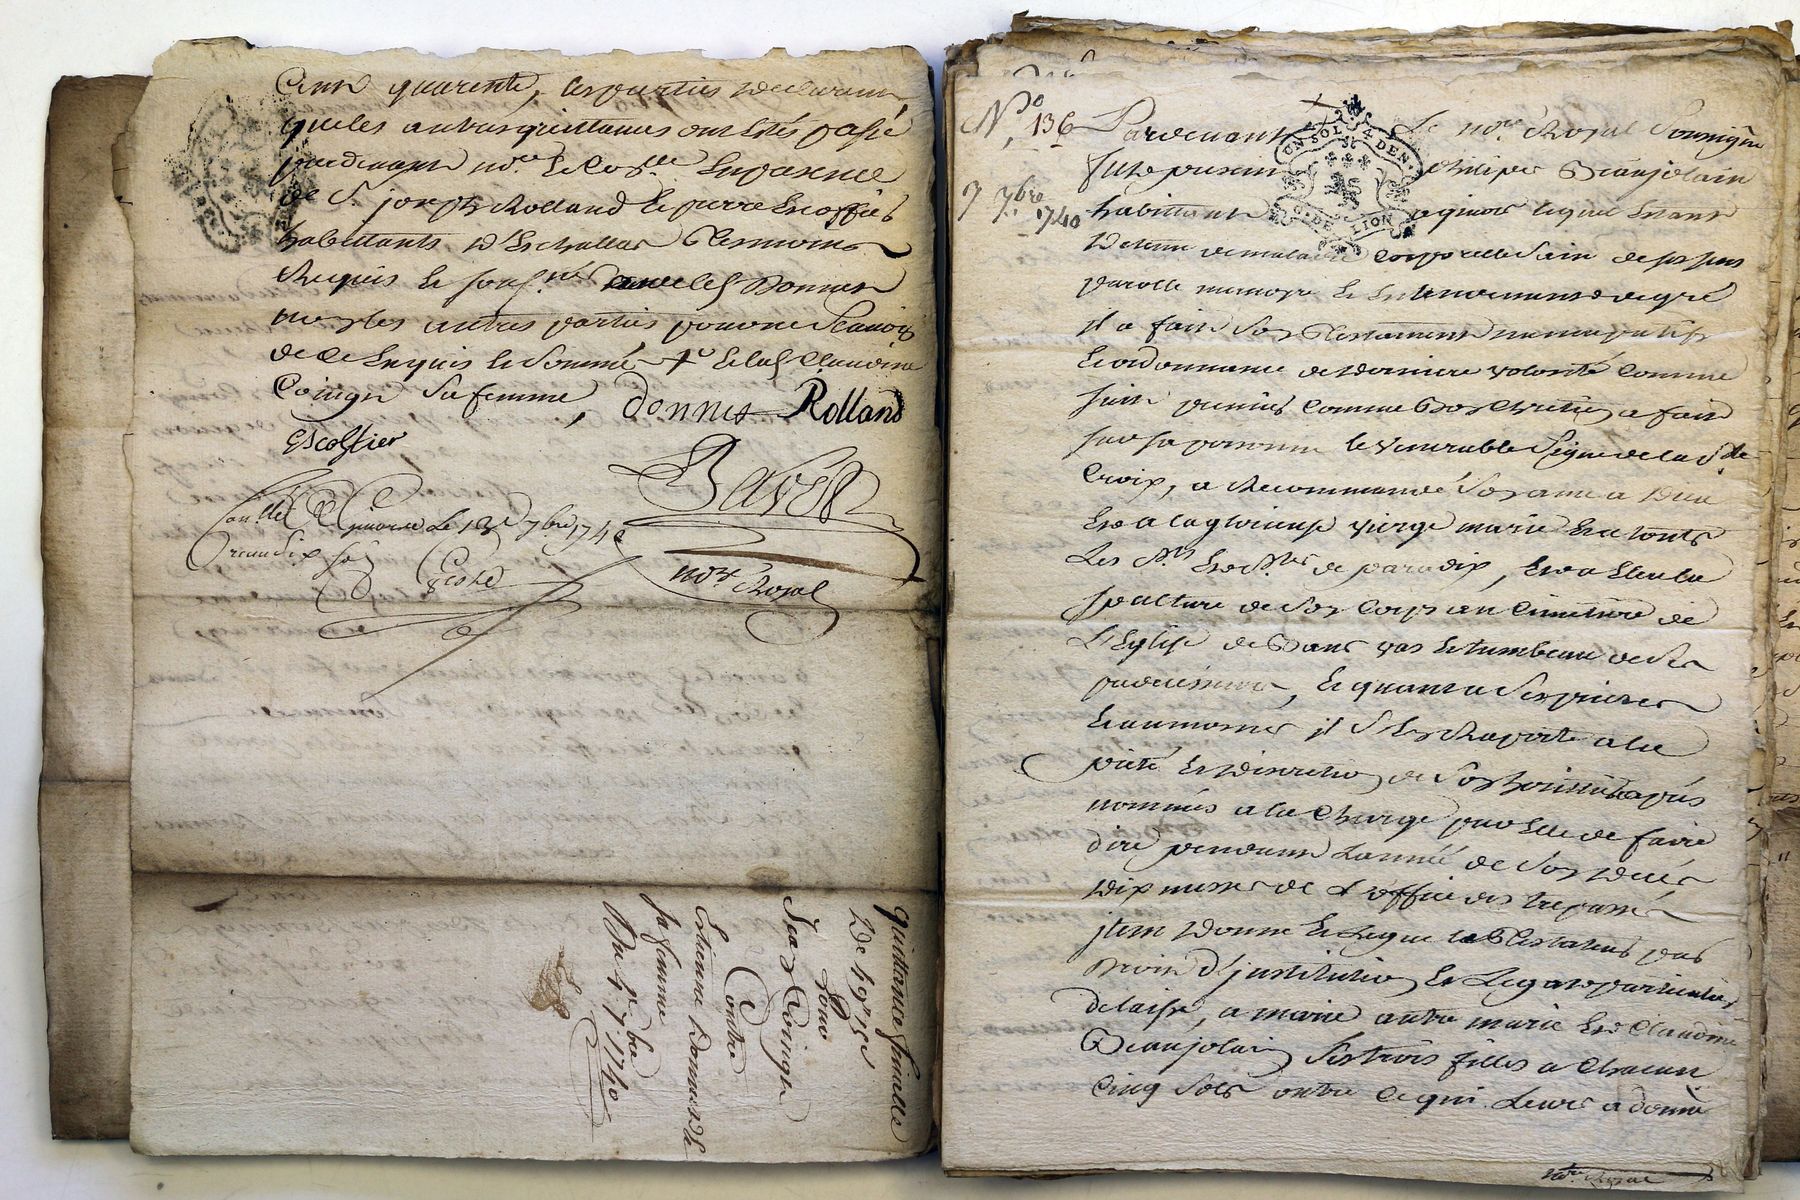 Cent quarente, les parties declarant
que les autres quittances ont etés passé
pardevant no.re le Roy.l En presence
de S.r joseph Rolland Et pierre Escoffier
habittants d'Echallas temoins
Requis Et sous.nés avec led Donnet
non les autres parties pour ne scavoir
de ce Enquis Et Sommé Claudine
Coingt Sa femme, donnet Rolland
Escoffier
Bavet
Giuore Le 13e 7bre 1740
Receu dix so
not.re Royal
quittance finalle
De 49 l 5 s
pour
Jean Coingt
Contre
Estienne Donnet Et
Sa femme
Du 4e 7bre 1740
N° 136 Pardevant Le no.re Royal Soussigné
fut present philipes Beaujolain
7 7bre 1740
habittant a giuors lequel Estant
Detenu de maladie Corporelle Sain de ses sens
parolle memoire Et Entendement de gré
il a fait Son Testament noncupatif
Et ordonnance de derniere volonté Comme
suit premier Comme Bon Chretien a fait
sur sa personne le venerable Signe de la Ste
Croix, a Recommandé Son ame a Dieu
Et a la glorieuse vierge marie Et a touts
Les Sts Et Stes de paradix, Et a Eleu la
sepulture de Son Corps au Cimetiere de
L'Eglise de Bans vas Et tumbeau de Ses
predecesseurs, Et quant a Ses prieres
Et aumosnes il S'En Raporte a la
pieté Et discretion de Son heritier apres
nommés a la Charge par Elle de faire
dire pendant Lannée de Son deces
Dix messes de L'office des trepassés
jtem donne Et Legue led Testateur par
Droit d'institution Et Legat particulier
delaisse, a marie autre marie Et Claudine
Beaujolain Ses trois filles a Chacune
Cinq Sols outre Ce qui Leurs a donné
not.re Royal
UN SOL 4 DEN.
G. DE LION